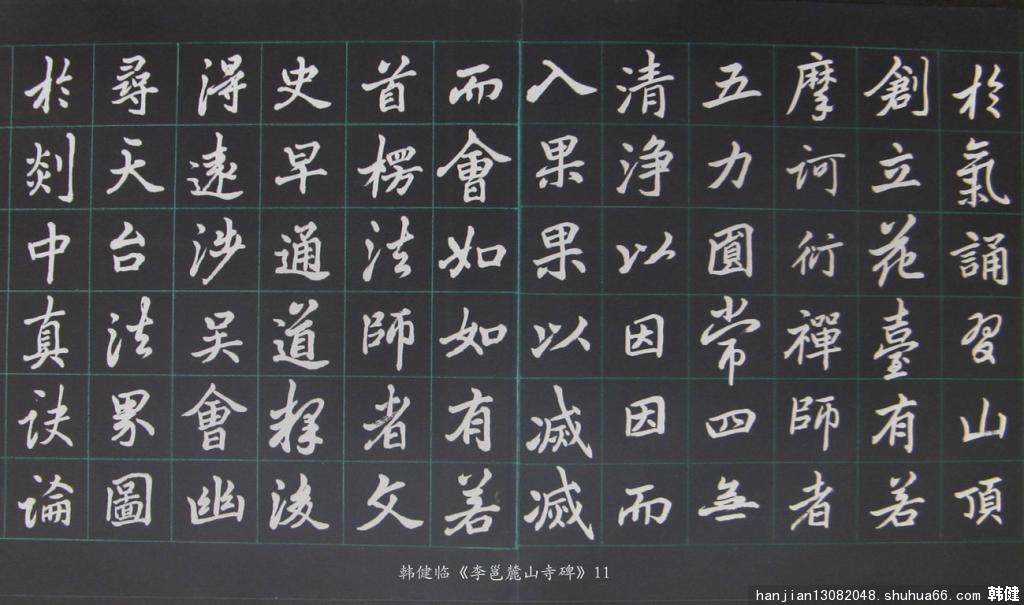 於氣誦習山頂
創立花臺有若
摩訶衍禪師者
五力圓常四無
清浄以因因而
入果果以滅滅
而會如如有若
首楞法師者文
史早通道釋後
得遠涉吳會幽
尋天台法界圖
於剡中真訣論
韩健临《李邕麓山寺碑》11
hanjian13082048.shuhua66.com 韩健